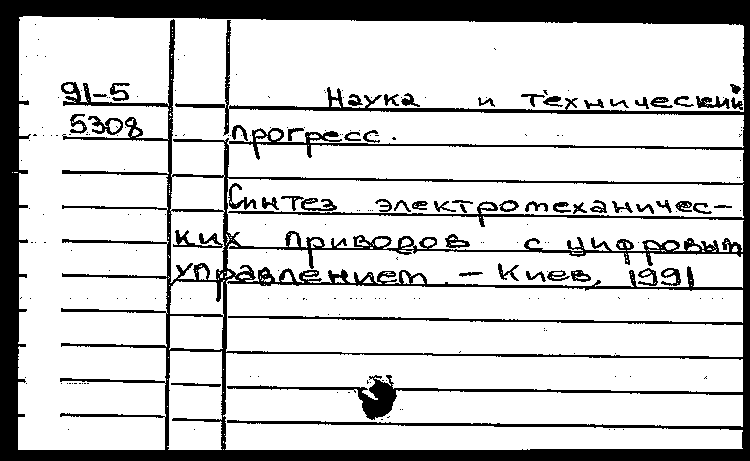 91-5 Наука и технический
5308 прогресс.
Синтез электромеханичес-
ких приводов с цифровым
управлением. - Киев, 1991